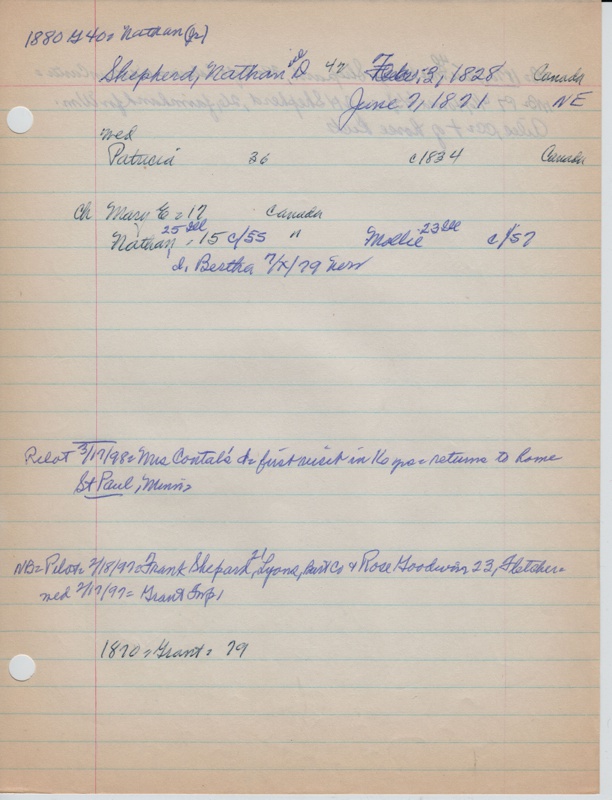 1880 G 40 = Nathan (Jr)
Shepherd, Nathan D 47 Febr. 3, 1828 Canada
June 7, 1821 NE
wed
Patricia 36 c1834 Canada
Ch Mary E = 17 Canada
25 Ill 23 Ill
Nathan = 15 c/55 " Mollie c/57
d. Bertha 7/X/79 New
Pilot 3/17/98 = Mrs Contal's d = first visit in 16 yrs = returns to home
St Paul, Minn =
NB = Pilot = 2/18/97 = Frank Shepard, 21 Lyons, & Rose Goodwin 23, Fletcher =
wed 2/17/97 = Grant Twp
1870 = Grant = 79